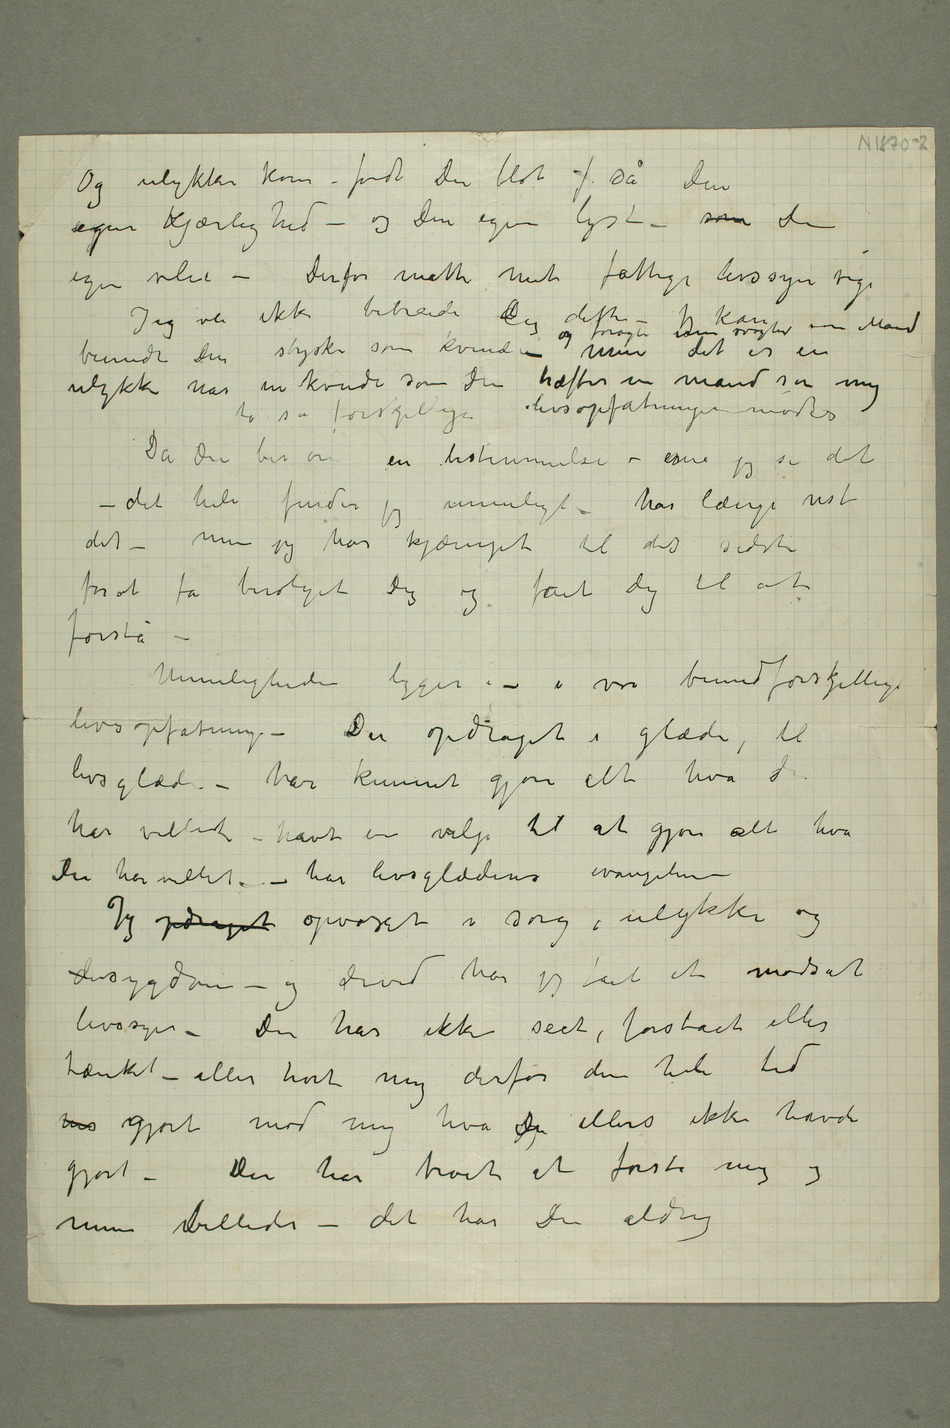 N 1870-2
Og ulykken kom – fordi Du blot så Din
egen Kjærlighed – og Din egen lyst – som Din
egen vilie – Derfor måtte mit fattige livssyn vige
Jeg vil ikke bebreide Dig dette – Jeg kan
og foragte min svaghed som Mand
beundre Din styrke som kvinde – men det er en
ulykke når en kvinde som Din træffer en mand som mig
to så forskjellige livsopfatninger mødes
Da Du ber om en bestemmelse – evne jeg se det
– det hele finder jeg umuligt – har længe vist
det – men jeg har kjæmpet til det sidste
forat få beroliget Dig og fået dig til at
forstå –
Umuligheden ligger i – i vor bundforskjellige
livsopfatning – Du opdraget i glæde, til
livsglæde – har kunnet gjøre alt hva du
har villet – havt en vilje til at gjøre alt hva
Du har villet – har livsglædens evangelium
Jeg opdraget opvoxet i sorg, ulykke og
sygdom – og derved har jeg fåt et modsat
livssyn – Du har ikke seet, forstået eller
tænkt – eller hørt mig derfor den hele tid
gjort mod mig hva Du ellers ikke havde
gjort – Du har troet at forstå mig og
mine billeder – det har Du aldrig